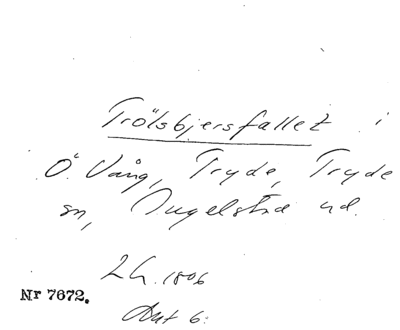 Trölsbjersfallet i
Ö. Vång, Tryde, Tryde
sn, Ingelstad hd.
Lh. 1806
Nr 7672.
Akt 6: